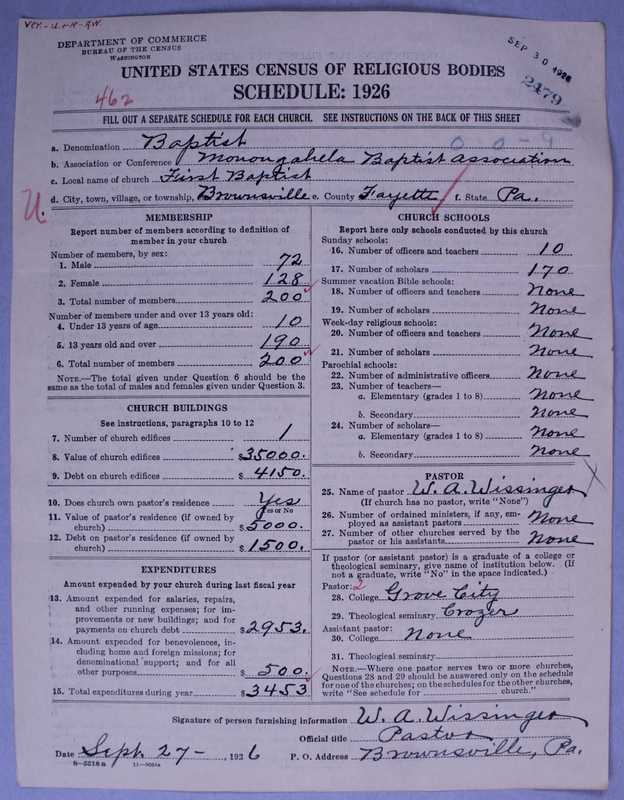 Ver. - U. + R. - R.W.
DEPARTMENT OF COMMERCE
BUREAU OF THE CENSUS
WASHINGTON
SEP 30 1926
2479
UNITED STATES CENSUS OF RELIGIOUS BODIES
462
SCHEDULE: 1926
FILL OUT A SEPARATE SCHEDULE FOR EACH CHURCH. SEE INSTRUCTIONS ON THE BACK OF THIS SHEET
a. Denomination Baptist 0 0-9
b. Association or Conference Monongahela Baptist Association
c. Local name of church First Baptist
d. City, town, village, or township, Brownsville e. County Fayette f. State Pa.
U.
MEMBERSHIP
Report number of members according to definition of member in your church
Number of members, by sex:
1. Male 72
2. Female 128
3. Total number of members 200
Number of members under and over 13 years old:
4. Under 13 years of age 10
5. 13 years old and over 190
6. Total number of members 200
NOTE.—The total given under Question 6 should be the
same as the total of males and females given under Question 3.
CHURCH BUILDINGS
See instructions, paragraphs 10 to 12
7. Number of church edifices 1
8. Value of church edifices $35000.
9. Debt on church edifices $4150.
10. Does church own pastor's residence Yes
Yes or No
11. Value of pastor's residence (if owned by
church) $5000.
12. Debt on pastor's residence (if owned by
church) $1500.
EXPENDITURES
Amount expended by your church during last fiscal year
13. Amount expended for salaries, repairs,
and other running expenses; for im-
provements or new buildings; and for
payments on church debt $2953.
14. Amount expended for benevolences, in-
cluding home and foreign missions; for
denominational support; and for all
other purposes $500.
15. Total expenditures during year $3453
CHURCH SCHOOLS
Report here only schools conducted by this church
Sunday schools:
16. Number of officers and teachers 10
17. Number of scholars 170
Summer vacation Bible schools:
18. Number of officers and teachers None
19. Number of scholars None
Week-day religious schools:
20. Number of officers and teachers None
21. Number of scholars None
Parochial schools:
22. Number of administrative officers None
23. Number of teachers—
a. Elementary (grades 1 to 8) None
b. Secondary None
24. Number of scholars—
a. Elementary (grades 1 to 8) None
b. Secondary None
PASTOR
25. Name of pastor W. A. Wissinger
(If church has no pastor, write "None")
26. Number of ordained ministers, if any, em-
ployed as assistant pastors None
27. Number of other churches served by the
pastor or his assistants None
If pastor (or assistant pastor) is a graduate of a college or
theological seminary, give name of institution below. (If
not a graduate, write "No" in the space indicated.)
Pastor: 2
28. College Grove City
29. Theological seminary Crozer
Assistant pastor:
30. College None
31. Theological seminary
NOTE.—Where one pastor serves two or more churches,
Questions 28 and 29 should be answered only on the schedule
for one of the churches; on the schedules for the other churches,
write "See schedule for church."
Signature of person furnishing information W. A. Wissinger
Official title Pastor
Date Sept. 27 - , 1926 P. O. Address Brownsville, Pa.
8—5518 a